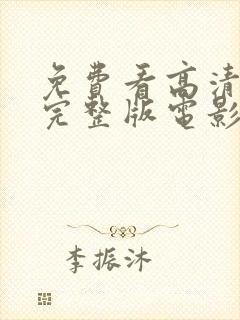 免費看高清
完整版電影
李振沐